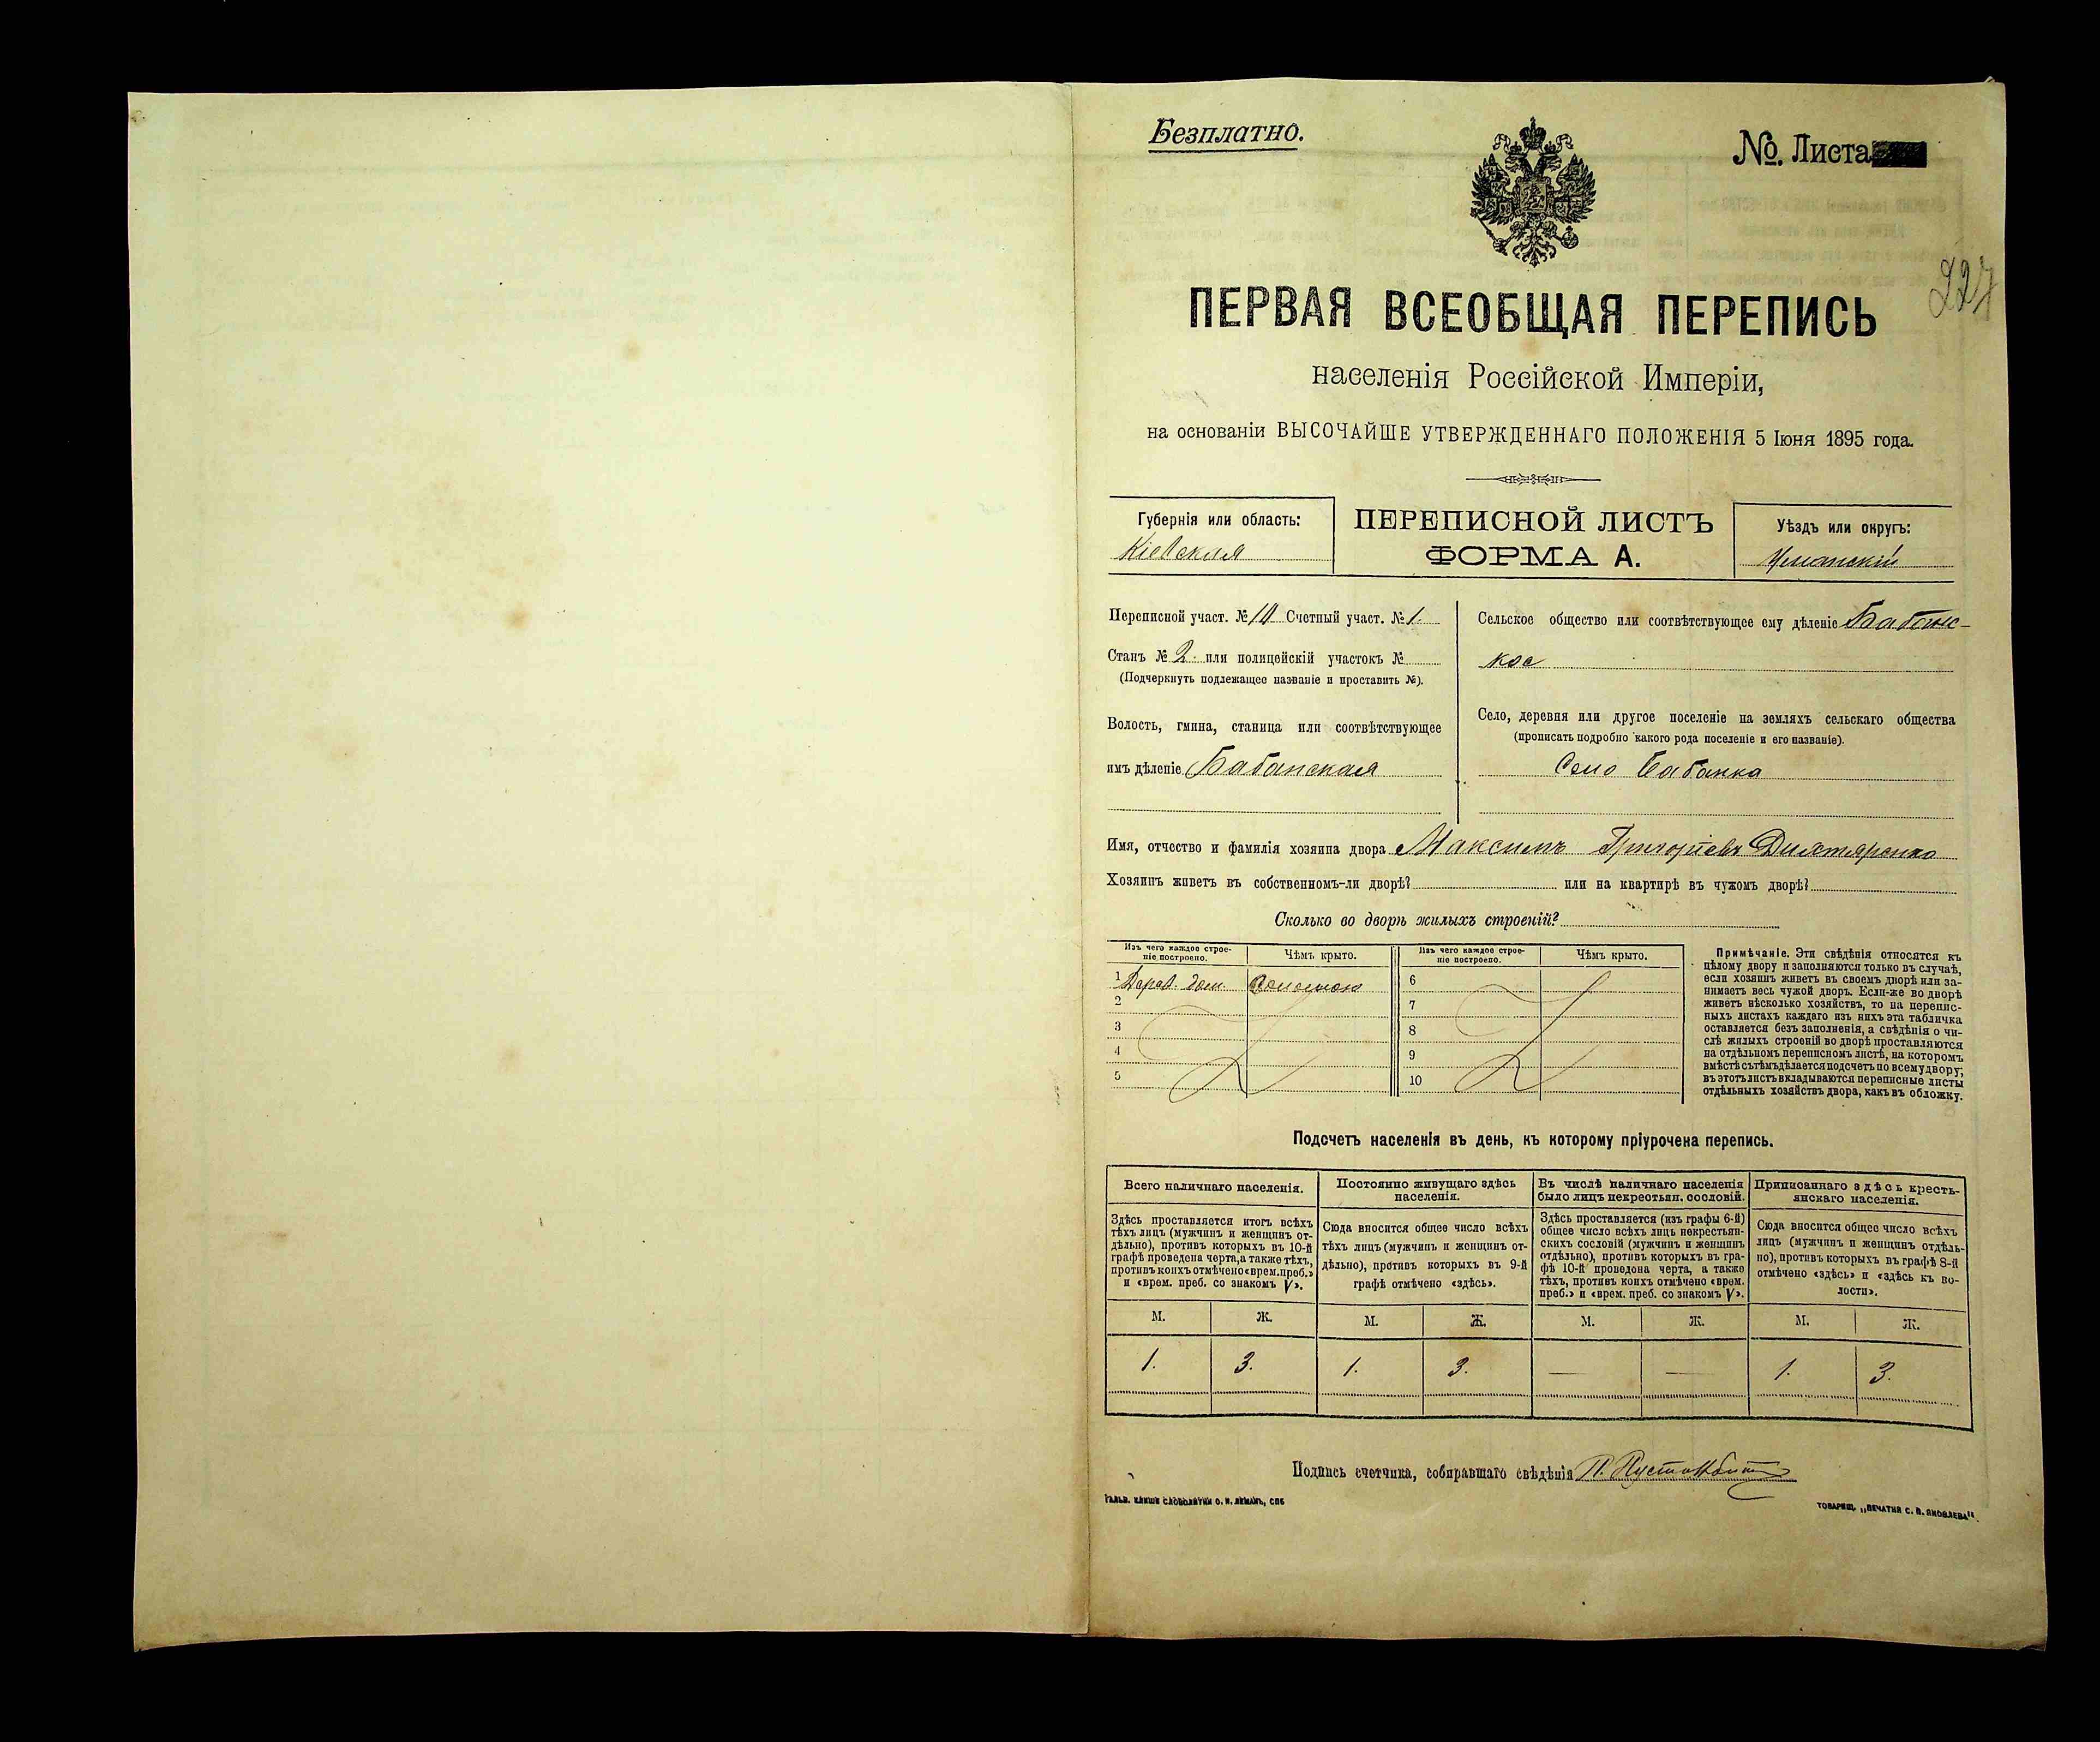 Безплатно.
№. Листа
227
ПЕРВАЯ ВСЕОБЩАЯ ПЕРЕПИСЬ
населенія Россійской Имперіи,
на основаніи ВЫСОЧАЙШЕ УТВЕРЖДЕННАГО ПОЛОЖЕНІЯ 5 Іюня 1895 года.
Губернія или область:
Кіевская
ПЕРЕПИСНОЙ ЛИСТЪ
ФОРМА А.
Уѣздъ или округъ:
Уманскій
Переписной участ. № 10 Счетный участ. № 1.
Станъ № 2. или полицейскій участокъ №
(Подчеркнуть подлежащее названіе и проставить №).
Волость, гмина, станица или соотвѣтствующее
имъ дѣленіе Бабанская
Сельское общество или соотвѣтствующее ему дѣленіе Бабанс-
кое
Село, деревня или другое поселеніе на земляхъ сельскаго общества
(прописать подробно какого рода поселеніе и его названіе).
Село Бабанка
Имя, отчество и фамилія хозяина двора Максимъ Григоріевъ Дихтяренко
Хозяинъ живетъ въ собственномъ-ли дворѣ? или на квартирѣ въ чужомъ дворѣ?
Сколько во дворѣ жилыхъ строеній?
Изъ чего каждое строе-
ніе построено.
Чѣмъ крыто.
Изъ чего каждое строе-
ніе построено.
Чѣмъ крыто.
1 Дерев. дом. Соломою
2
3
4
5
6
7
8
9
10
Примѣчаніе. Эти свѣдѣнія относятся къ
цѣлому двору и заполняются только въ случаѣ,
если хозяинъ живетъ въ своемъ дворѣ или за-
нимаетъ весь чужой дворъ. Если-же во дворѣ
живетъ нѣсколько хозяйствъ, то на перепис-
ныхъ листахъ каждаго изъ нихъ эта табличка
оставляется безъ заполненія, а свѣдѣнія о чи-
слѣ жилыхъ строеній во дворѣ проставляются
на отдѣльномъ переписномъ листѣ, на которомъ
вмѣстѣ съ тѣмъ дѣлается подсчетъ по всему двору;
въ этотъ листъ вкладываются переписные листы
отдѣльныхъ хозяйствъ двора, какъ въ обложку.
Подсчетъ населенія въ день, къ которому пріурочена перепись.
Всего наличнаго населенія.
Здѣсь проставляется итогъ всѣхъ
тѣхъ лицъ (мужчинъ и женщинъ от-
дѣльно), противъ которыхъ въ 10-й
графѣ проведена черта, а также тѣхъ,
противъ коихъ отмѣчено «врем. преб.»
и «врем. преб. со знакомъ V».
Постоянно живущаго здѣсь
населенія.
Сюда вносится общее число всѣхъ
тѣхъ лицъ (мужчинъ и женщинъ от-
дѣльно), противъ которыхъ въ 9-й
графѣ отмѣчено «здѣсь».
Въ числѣ наличнаго населенія
было лицъ некрестьян. сословій.
Здѣсь проставляется (изъ графы 6-й)
общее число всѣхъ лицъ некрестьян-
скихъ сословій (мужчинъ и женщинъ
отдѣльно), противъ которыхъ въ гра-
фѣ 10-й проведена черта, а также
тѣхъ, противъ коихъ отмѣчено «врем.
преб.» и «врем. преб. со знакомъ V».
Приписаннаго здѣсь кресть-
янскаго населенія.
Сюда вносится общее число всѣхъ
лицъ (мужчинъ и женщинъ отдѣль-
но), противъ которыхъ въ графѣ 8-й
отмѣчено «здѣсь» и «здѣсь къ во-
лости».
М. Ж. М. Ж. М. Ж. М. Ж.
1. 3. 1. 3. — — 1. 3.
Подпись счетчика, собиравшаго свѣдѣнія П. Пустовбит
ГАЛЬВ. КЛИШЕ СЛОВОЛИТНИ О. И. ЛЕМАНЪ, СПБ
ТОВАРИЩ. „ПЕЧАТНЯ С. П. ЯКОВЛЕВА".